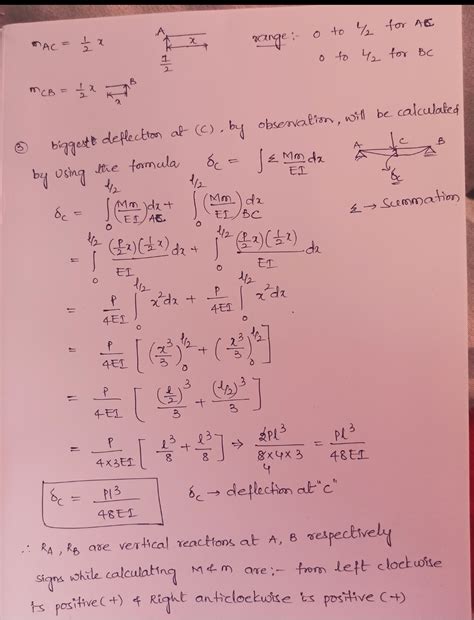 m_AC = 1/2 x A x 1/2 range:- 0 to L/2 for AC
0 to L/2 for BC
m_CB = 1/2 x B x
③ biggest deflection at (C), by observation, will be calculated
by using the formula δ_c = ∫ Σ Mm/EI dx A C B δ_c
δ_c = ∫_0^{l/2} (Mm/EI)_AC dx + ∫_0^{l/2} (Mm/EI)_BC dx Σ → Summation
= ∫_0^{l/2} (P/2 x)(1/2 x)/EI dx + ∫_0^{l/2} (P/2 x)(1/2 x)/EI dx
= P/4EI ∫_0^{l/2} x² dx + P/4EI ∫_0^{l/2} x² dx
= P/4EI [ (x³/3)_0^{l/2} + (x³/3)_0^{l/2} ]
= P/4EI [ (l/2)³/3 + (l/2)³/3 ]
= P/4×3EI [ l³/8 + l³/8 ] ⇒ 2Pl³/8×4×3 4 = Pl³/48EI
δ_c = Pl³/48EI δ_c → deflection at "c"
∴ R_A, R_B are vertical reactions at A, B respectively
signs while calculating M & m are:- from left clockwise
is positive (+) & Right anticlockwise is positive (+)